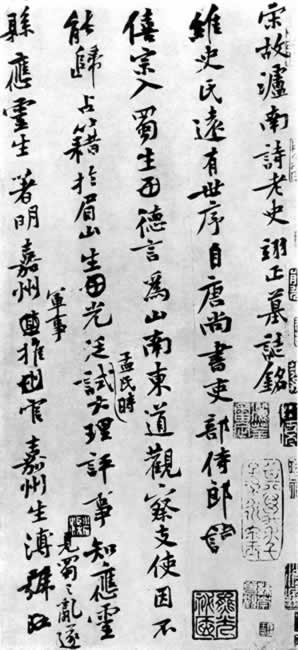 宋故瀘南詩老史翊正墓誌銘
維史氏遠有世序自唐尚書吏部侍郎
僖宗入蜀生德言為山南東道觀察支使因不
孟氏時
能歸占籍於眉山生光廷試大理評事知應靈
蜀之亂遂
軍事
縣應靈生著明嘉州推官嘉州生溥號江